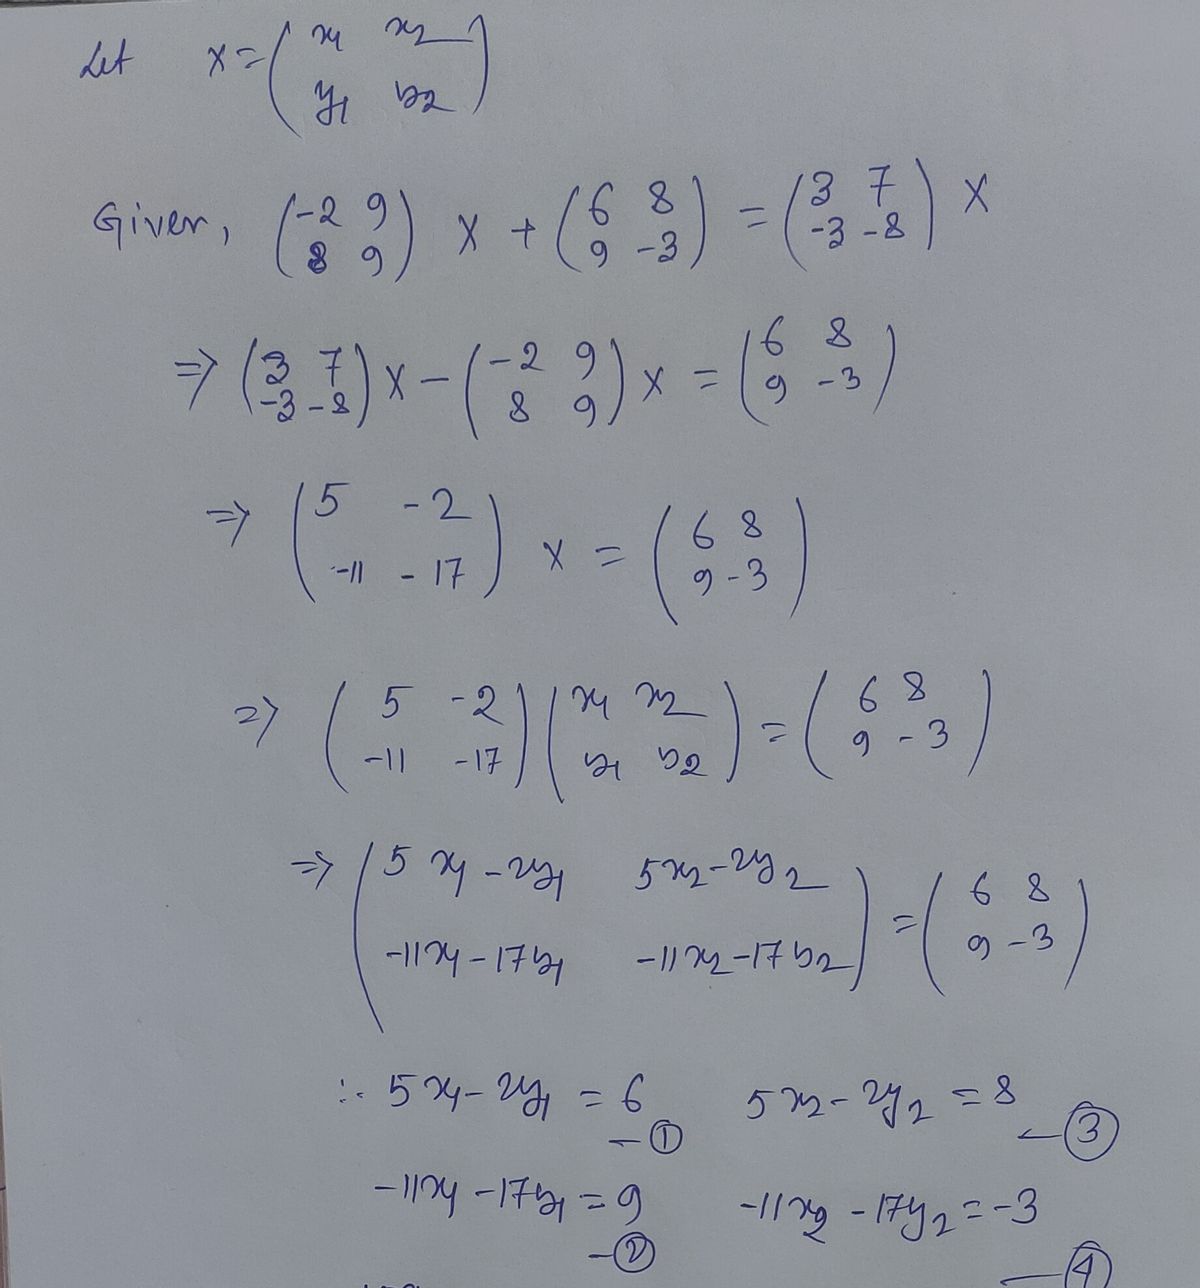 Let X = ( x1 x2
y1 y2 )
Given, ( -2 9
8 9 ) X + ( 6 8
9 -3 ) = ( 3 7
-3 -8 ) X
⇒ ( 3 7
-3 -8 ) X - ( -2 9
8 9 ) X = ( 6 8
9 -3 )
⇒ ( 5 -2
-11 -17 ) X = ( 6 8
9 -3 )
⇒ ( 5 -2
-11 -17 ) ( x1 x2
y1 y2 ) = ( 6 8
9 -3 )
⇒ ( 5x1 - 2y1 5x2 - 2y2
-11x1 - 17y1 -11x2 - 17y2 ) = ( 6 8
9 -3 )
∴ 5x1 - 2y1 = 6 5x2 - 2y2 = 8
— ① — ③
-11x1 - 17y1 = 9 -11x2 - 17y2 = -3
— ② — ④